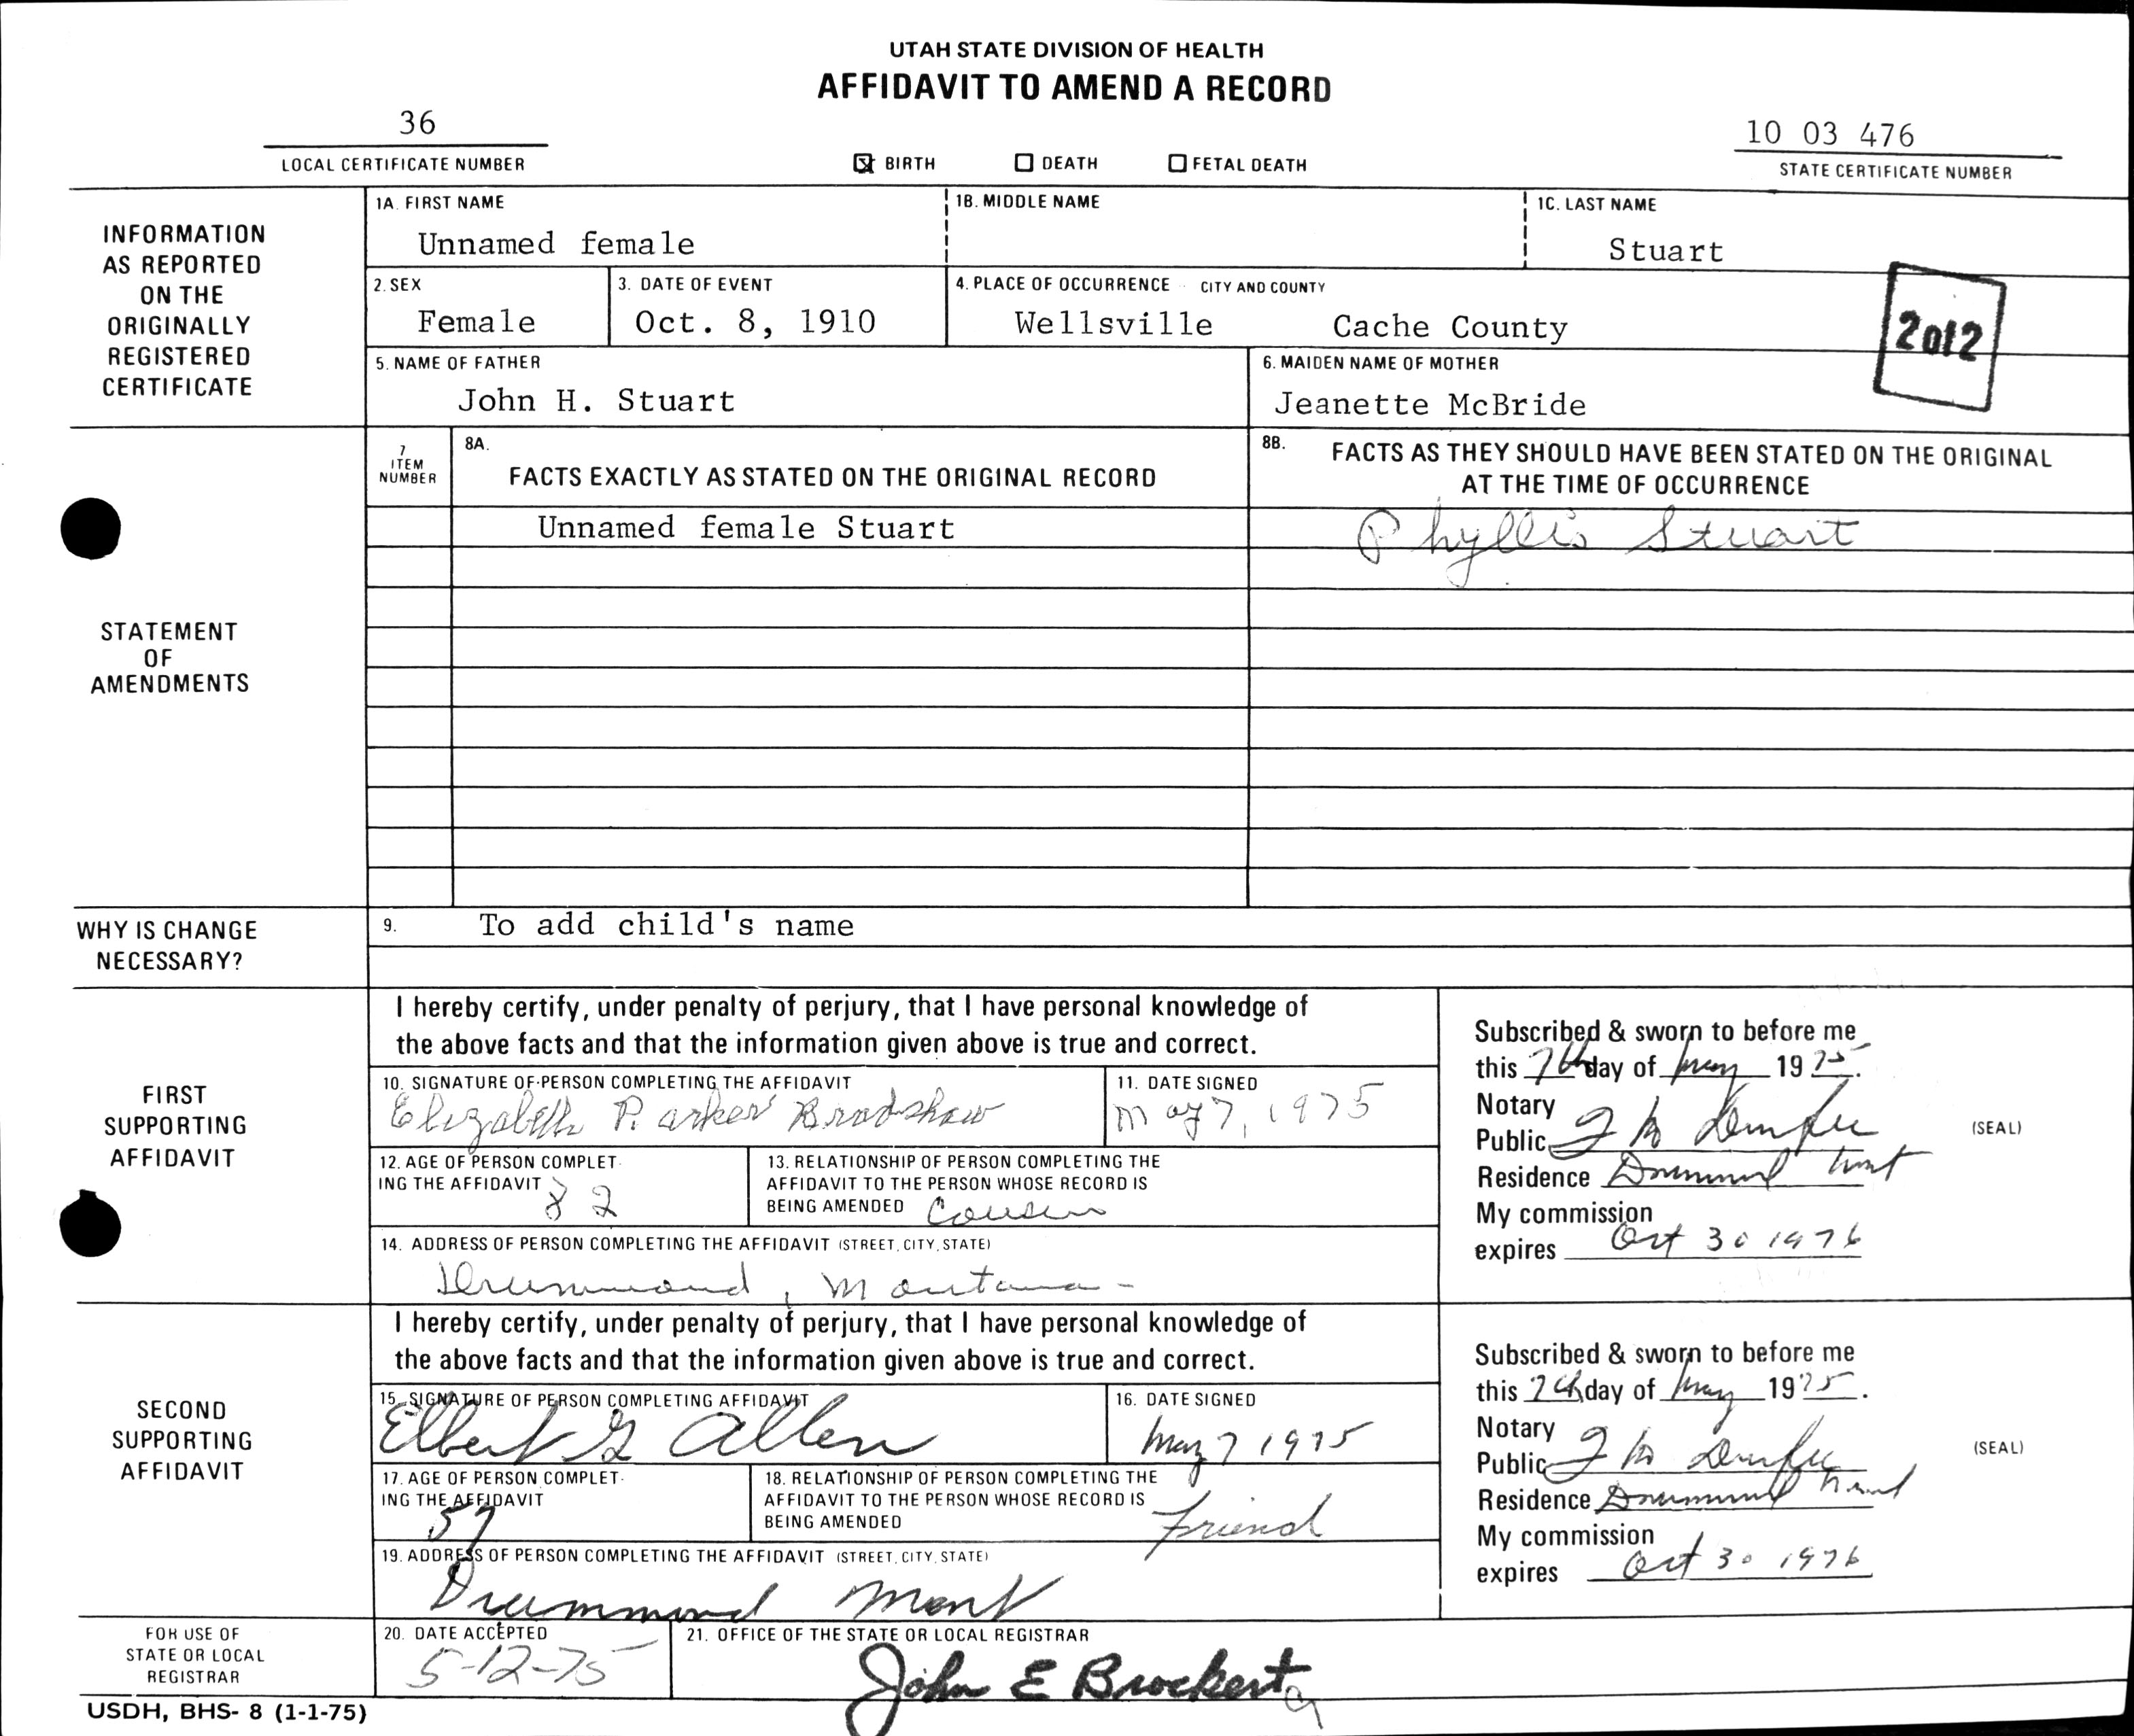 UTAH STATE DIVISION OF HEALTH
AFFIDAVIT TO AMEND A RECORD
36
LOCAL CERTIFICATE NUMBER
BIRTH DEATH FETAL DEATH
10 03 476
STATE CERTIFICATE NUMBER
INFORMATION
AS REPORTED
ON THE
ORIGINALLY
REGISTERED
CERTIFICATE
1A. FIRST NAME
Unnamed female
1B. MIDDLE NAME
1C. LAST NAME
Stuart
2. SEX
Female
3. DATE OF EVENT
Oct. 8, 1910
4. PLACE OF OCCURRENCE CITY AND COUNTY
Wellsville Cache County
2012
5. NAME OF FATHER
John H. Stuart
6. MAIDEN NAME OF MOTHER
Jeanette McBride
STATEMENT
OF
AMENDMENTS
7
ITEM
NUMBER
8A.
FACTS EXACTLY AS STATED ON THE ORIGINAL RECORD
8B. FACTS AS THEY SHOULD HAVE BEEN STATED ON THE ORIGINAL
AT THE TIME OF OCCURRENCE
Unnamed female Stuart
Phyllis Stuart
WHY IS CHANGE
NECESSARY?
9. To add child's name
FIRST
SUPPORTING
AFFIDAVIT
I hereby certify, under penalty of perjury, that I have personal knowledge of
the above facts and that the information given above is true and correct.
10. SIGNATURE OF PERSON COMPLETING THE AFFIDAVIT
Elizabeth Parker Bradshaw
11. DATE SIGNED
May 7, 1975
12. AGE OF PERSON COMPLET-
ING THE AFFIDAVIT
82
13. RELATIONSHIP OF PERSON COMPLETING THE
AFFIDAVIT TO THE PERSON WHOSE RECORD IS
BEING AMENDED Cousin
14. ADDRESS OF PERSON COMPLETING THE AFFIDAVIT (STREET, CITY, STATE)
Drummond, Montana -
Subscribed & sworn to before me
this 7th day of May 1975.
Notary
Public
(SEAL)
Residence Drummond Mont
My commission
expires Oct 30 1976
SECOND
SUPPORTING
AFFIDAVIT
I hereby certify, under penalty of perjury, that I have personal knowledge of
the above facts and that the information given above is true and correct.
15. SIGNATURE OF PERSON COMPLETING AFFIDAVIT
Elbert G Allen
16. DATE SIGNED
May 7 1975
17. AGE OF PERSON COMPLET-
ING THE AFFIDAVIT
57
18. RELATIONSHIP OF PERSON COMPLETING THE
AFFIDAVIT TO THE PERSON WHOSE RECORD IS
BEING AMENDED Friend
19. ADDRESS OF PERSON COMPLETING THE AFFIDAVIT (STREET, CITY, STATE)
Drummond Mont
Subscribed & sworn to before me
this 7th day of May 1975.
Notary
Public
(SEAL)
Residence Drummond Mont
My commission
expires Oct 30 1976
FOR USE OF
STATE OR LOCAL
REGISTRAR
20. DATE ACCEPTED
5-12-75
21. OFFICE OF THE STATE OR LOCAL REGISTRAR
John E Brockert
USDH, BHS- 8 (1-1-75)